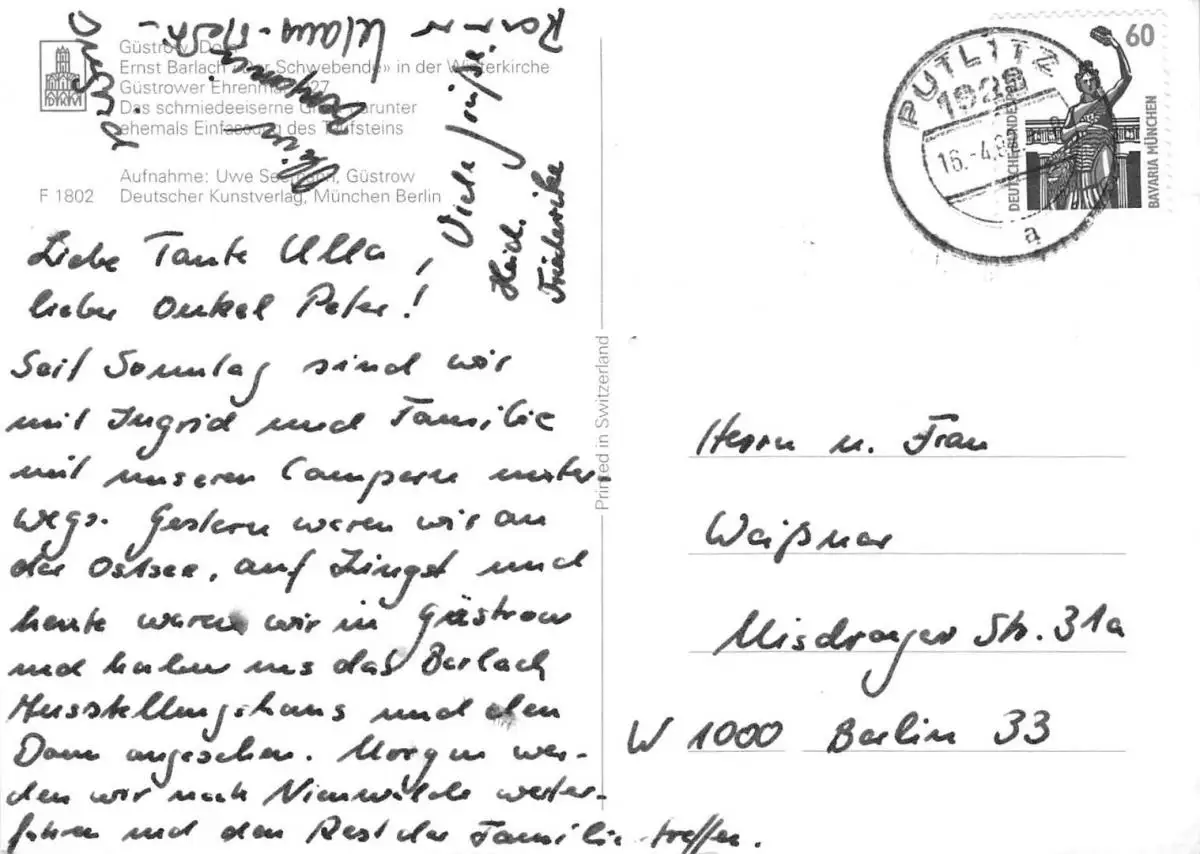 Güstrow, Dom
Ernst Barlach »Der Schwebende« in der Winterkirche
Güstrower Ehrenmal, 1927
Das schmiedeeiserne Gitter darunter
ehemals Einfassung des Taufsteins
Aufnahme: Uwe Seemann, Güstrow
F 1802 Deutscher Kunstverlag, München Berlin
DKV
Liebe Tante Ulla,
lieber Onkel Peter!
Seit Sonntag sind wir
mit Ingrid und Familie
mit unseren Campern unter-
wegs. Gestern waren wir an
der Ostsee, auf Zingst und
heute waren wir in Güstrow
und haben uns das Barlach
Ausstellungshaus und den
Dom angesehen. Morgen wer-
den wir nach weiter-
fahren und den Rest der Familie treffen.
Viele Grüße
Heid.
Friederike
Klaus-
Benjamin
Ingrid
Printed in Switzerland
PUTLITZ
1929
16.-4.9
a
60
DEUTSCHE BUNDESPOST
BAVARIA MÜNCHEN
Herrn u. Frau
Waißnar
Misdroyer Str. 31a
W 1000 Berlin 33